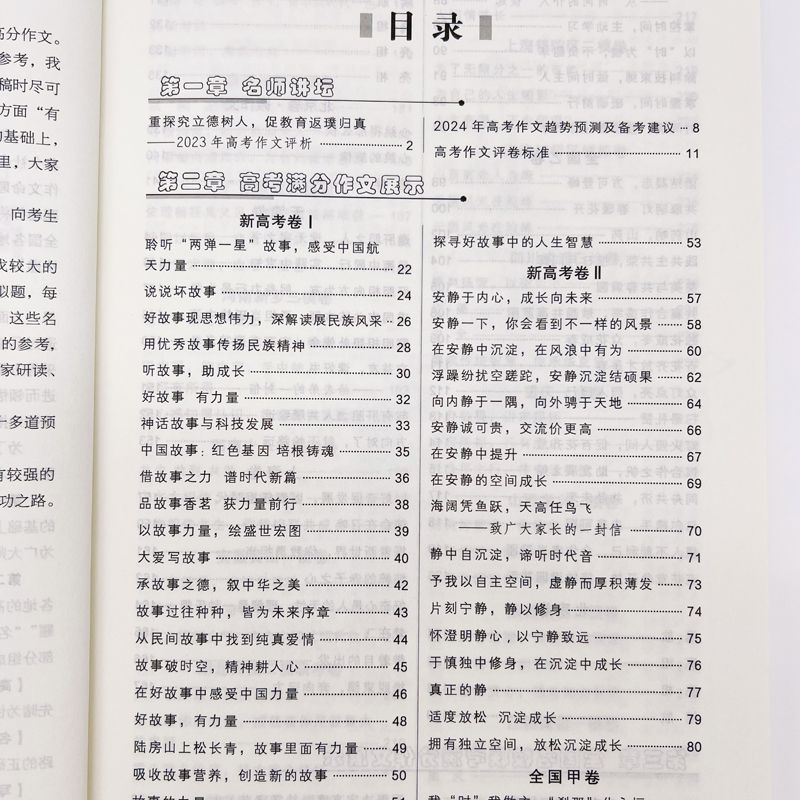 高分作文。
参考，我
稿时尽可
方面“有
的基础上，
里，大家
向考生
找较大的
拟题，每
这些名
的参考，
家研读、
十多道预
有较强的
功之路。
目录
第一章 名师讲坛
重探究立德树人，促教育返璞归真
——2023年高考作文评析 2
2024年高考作文趋势预测及备考建议 8
高考作文评卷标准 11
第二章 高考满分作文展示
新高考卷Ⅰ
聆听“两弹一星”故事，感受中国航
天力量 22
说说坏故事 24
好故事现思想伟力，深解读展民族风采 26
用优秀故事传扬民族精神 28
听故事，助成长 30
好故事 有力量 32
神话故事与科技发展 33
中国故事：红色基因 培根铸魂 35
借故事之力 谱时代新篇 36
品故事香茗 获力量前行 38
以故事力量，绘盛世宏图 39
大爱写故事 40
承故事之德，叙中华之美 42
故事过往种种，皆为未来序章 43
从民间故事中找到纯真爱情 44
故事破时空，精神耕人心 45
在好故事中感受中国力量 46
好故事，有力量 48
陆房山上松长青，故事里面有力量 49
吸收故事营养，创造新的故事 50
故事的力量 51
探寻好故事中的人生智慧 53
新高考卷Ⅱ
安静于内心，成长向未来 57
安静一下，你会看到不一样的风景 58
在安静中沉淀，在风浪中有为 60
浮躁纷扰空蹉跎，安静沉淀结硕果 62
向内静于一隅，向外骋于天地 64
安静诚可贵，交流价更高 66
在安静中提升 67
在安静的空间成长 69
海阔凭鱼跃，天高任鸟飞
——致广大家长的一封信 70
静中自沉淀，谛听时代音 71
予我以自主空间，虚静而厚积薄发 73
片刻宁静，静以修身 74
怀澄明静心，以宁静致远 75
于慎独中修身，在沉淀中成长 76
真正的静 77
适度放松 沉淀成长 79
拥有独立空间，放松沉淀成长 80
全国甲卷